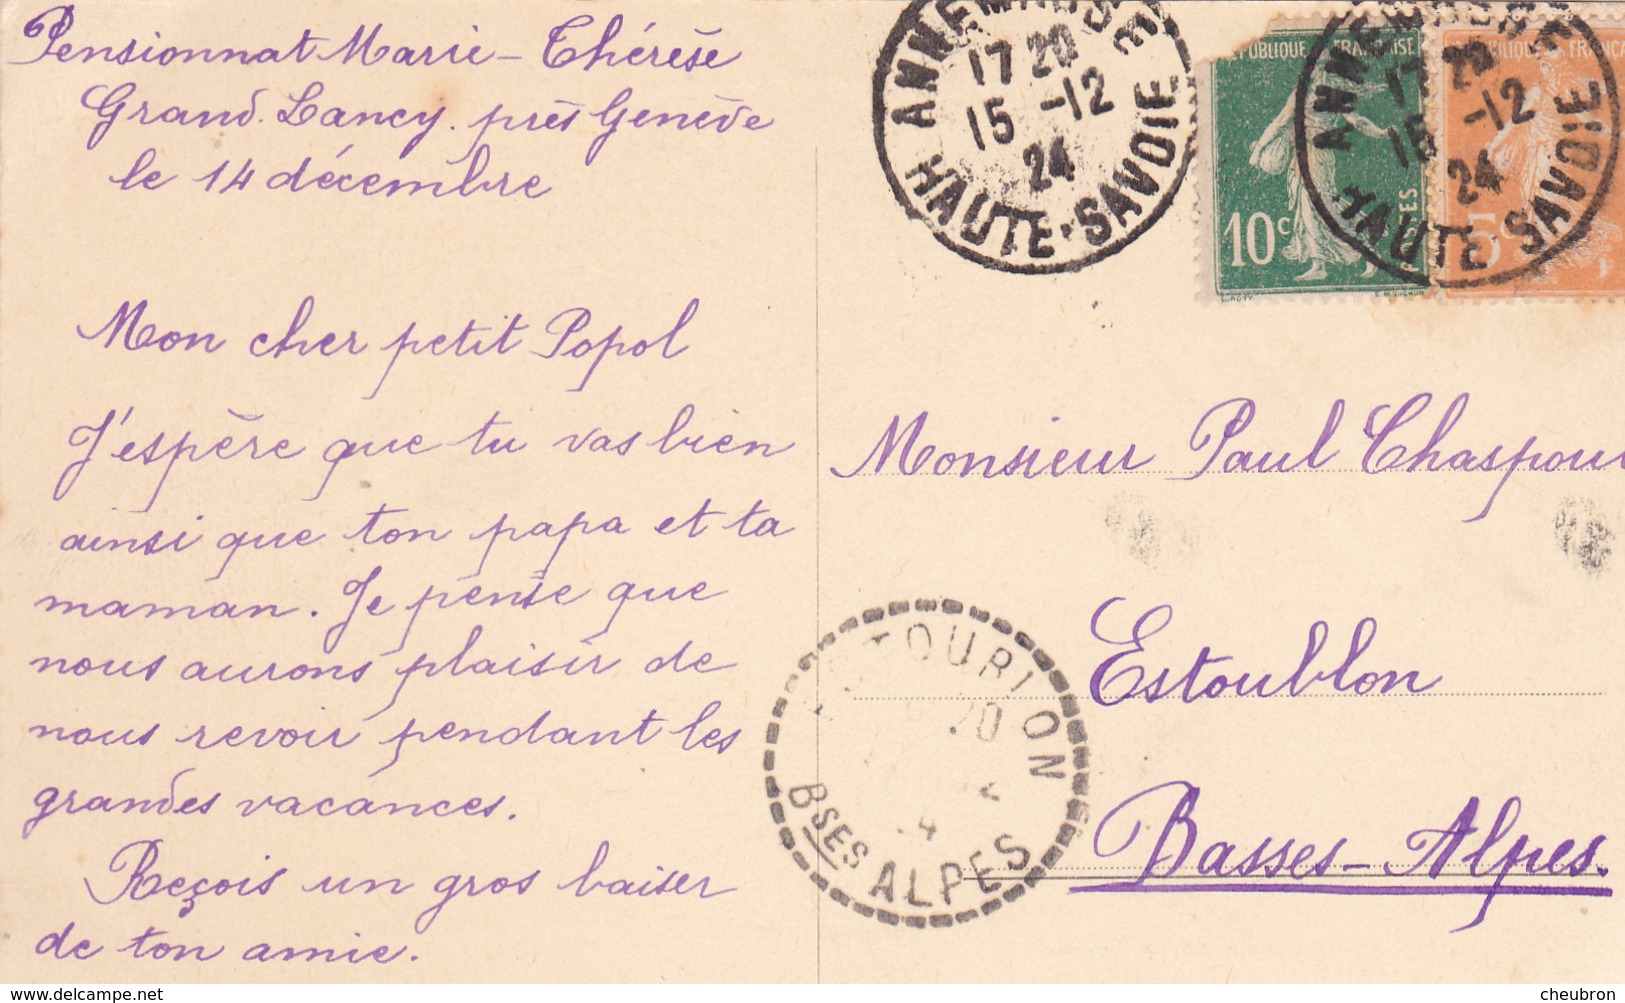 Pensionnat Marie-Thérèse
Grand. Lancy. près Genève
le 14 décembre
Mon cher petit Popol
J'espère que tu vas bien
ainsi que ton papa et ta
maman. Je pense que
nous aurons plaisir de
nous revoir pendant les
grandes vacances.
Reçois un gros baiser
de ton amie.
ANNEMASSE
17 20
15 -12
24
HAUTE-SAVOIE
REPUBLIQUE FRANÇAISE
10c
POSTES
5c
17 20
15 -12
24
HAUTE-SAVOIE
Monsieur Paul Chaspoul
Estoublon
Basses-Alpes.
BSES ALPES
www.delcampe.net
cheubron